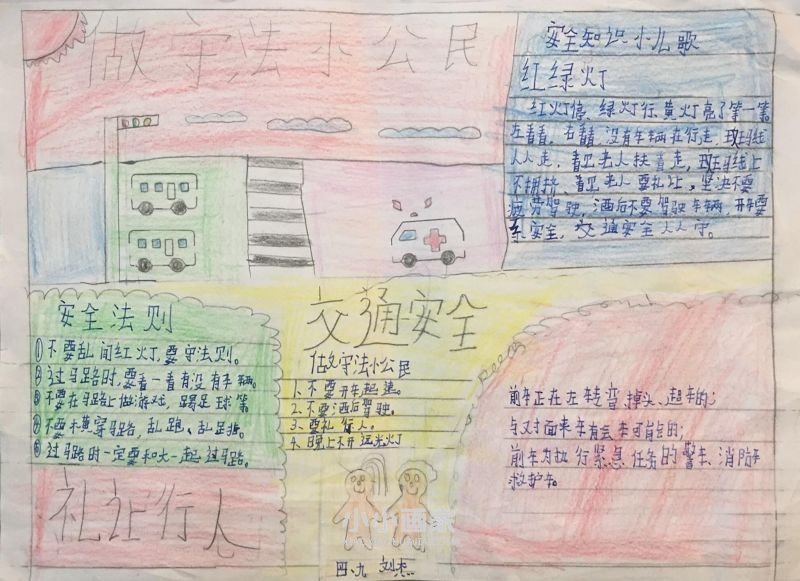 做守法小公民
安全知识小儿歌
红绿灯
红灯停、绿灯行、黄灯亮了等一等
左看看,右看看,没有车辆在行走,斑马线
人人走,看见老人扶着走,斑马线上
不拥挤、看见老人要礼让,坚决不要
疲劳驾驶,酒后不要驾驶车辆,开车要
系安全,交通安全人人守。
安全法则
①不要乱闯红灯,要守法则。
②过马路时,要看一看有没有车辆。
③不要在马路上做游戏,踢足球等
④不要横穿马路,乱跑、乱
⑤过马路时一定要和大一起过马路。
礼让行人
交通安全
做守法小公民
1、不要开车超速。
2、不要酒后驾驶。
3、要礼行人。
4、晚上不开远光灯
前车正在左转弯、掉头、超车的;
与对面来车有会车可能的;
前车为执行紧急任务的警车、消防车
救护车。
小小画家
四、九 刘杰